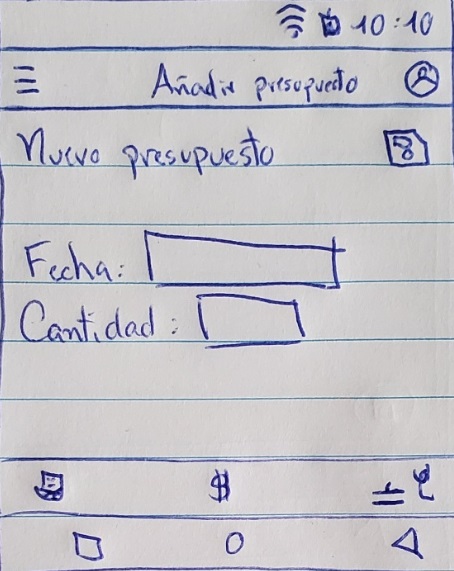 10:10
Añadir presupuesto
Nuevo presupuesto
Fecha:
Cantidad:
$